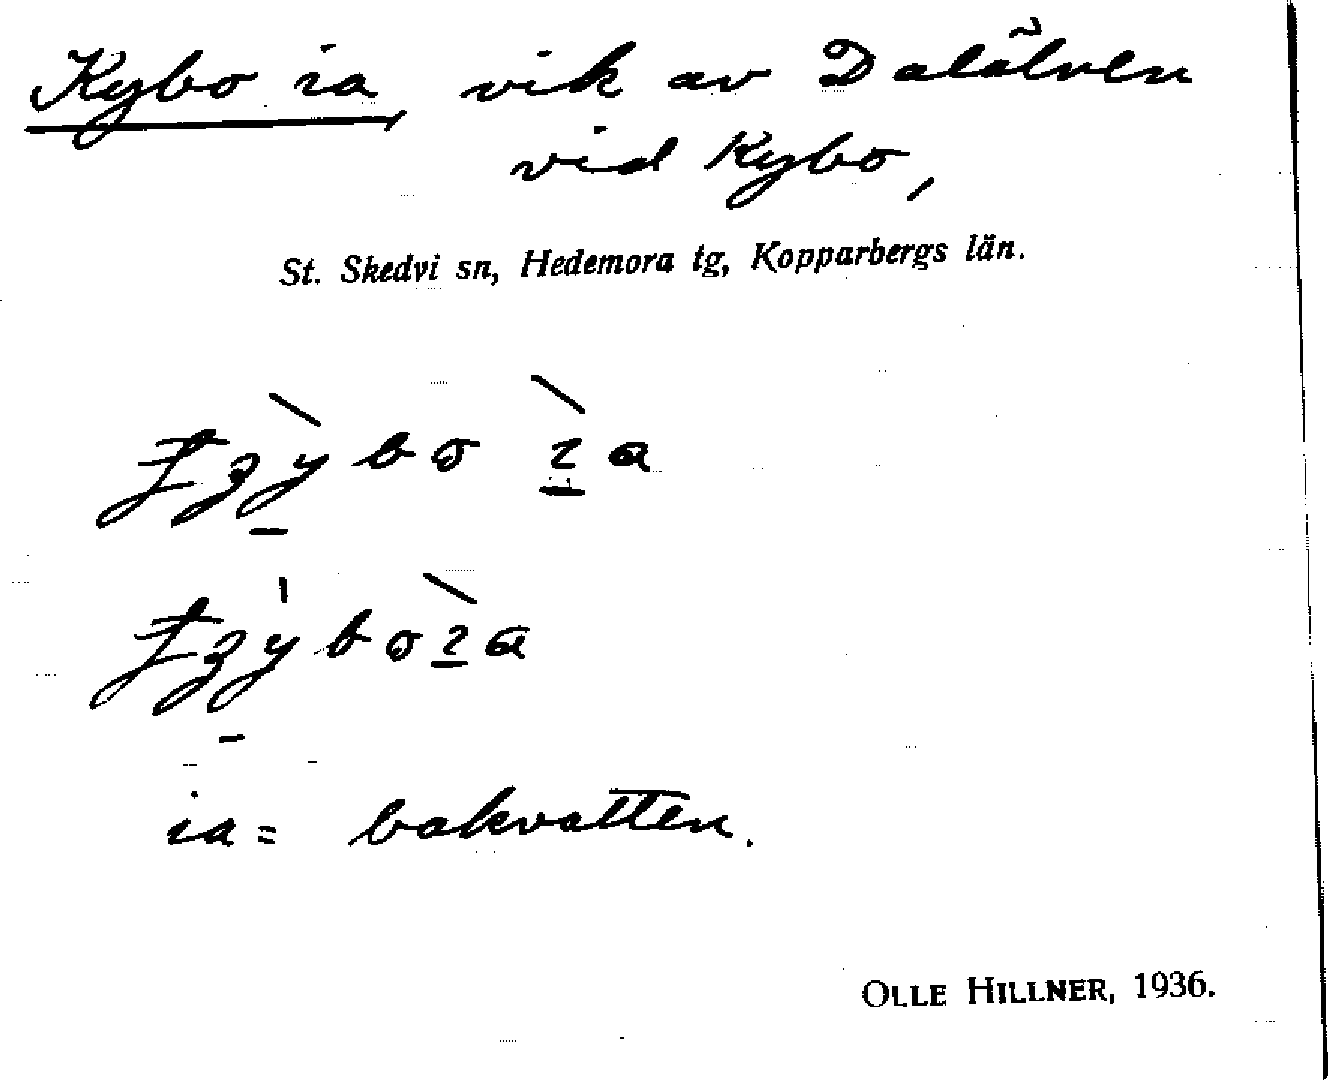 Kybo ia, vik av Dalälven
vid Kybo,
St. Skedvi sn, Hedemora tg, Kopparbergs län.
ia = bakvatten.
OLLE HILLNER, 1936.